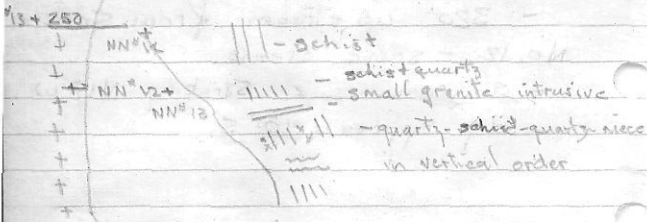 #13 + 250
NN#14 - schist
- schist quartz
NN#12 + small granite intrusive
NN#13
- quartz-schist-quartz-niece
in vertical order